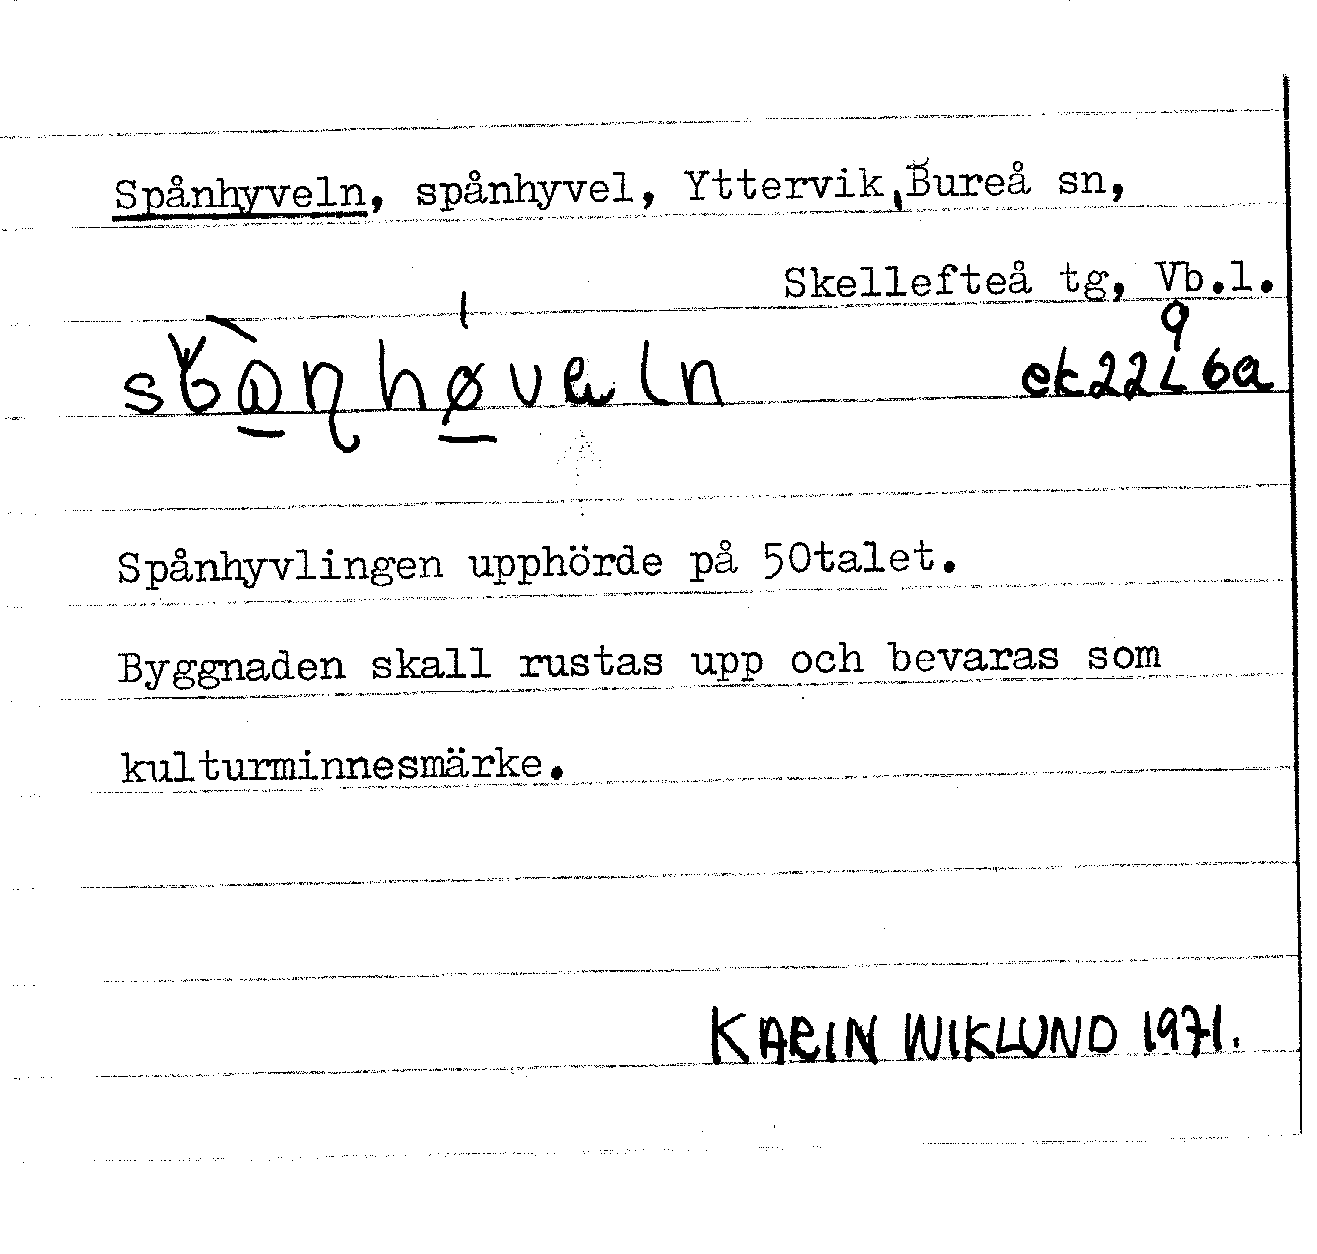 Spånhyveln, spånhyvel, Yttervik, Bureå sn,
Skellefteå tg, Vb.l.
ek 22 9 i 6a
Spånhyvlingen upphörde på 50talet.
Byggnaden skall rustas upp och bevaras som
kulturminnesmärke.
KARIN WIKLUND 1971.